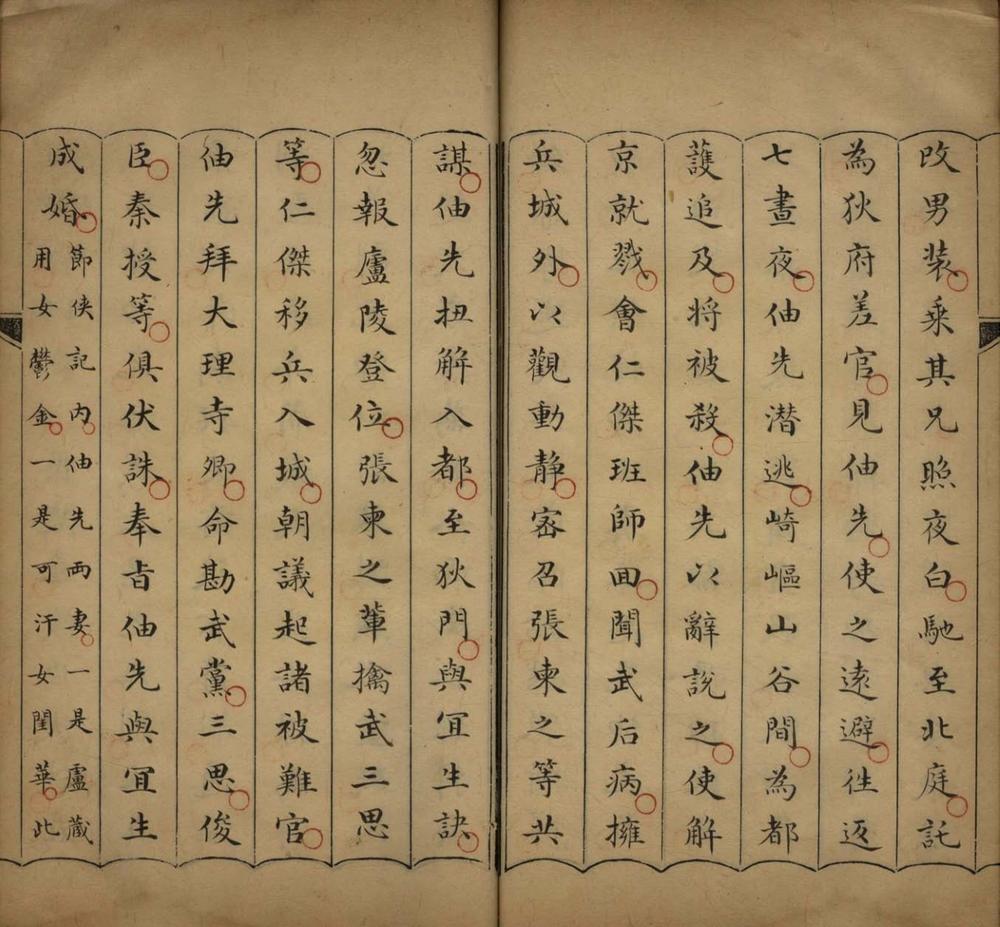 改男装乘其兄照夜白馳至北庭託
為狄府差官見伷先使之遠避徃返
七晝夜伷先潜逃崎嶇山谷間為都
護追及將被殺伷先以辭說之使解
京就戮會仁傑班師回聞武后病擁
兵城外以觀動静密召張柬之等共
謀伷先扭解入都至狄門與冝生訣
忽報廬陵登位張柬之軰擒武三思
等仁傑移兵入城朝議起諸被難官
伷先拜大理寺卿命勘武黨三思俊
臣秦授等俱伏誅奉旨伷先與冝生
成婚節俠記内伷先兩妻一是盧蔵
用女鬱金一是可汗女閨華此